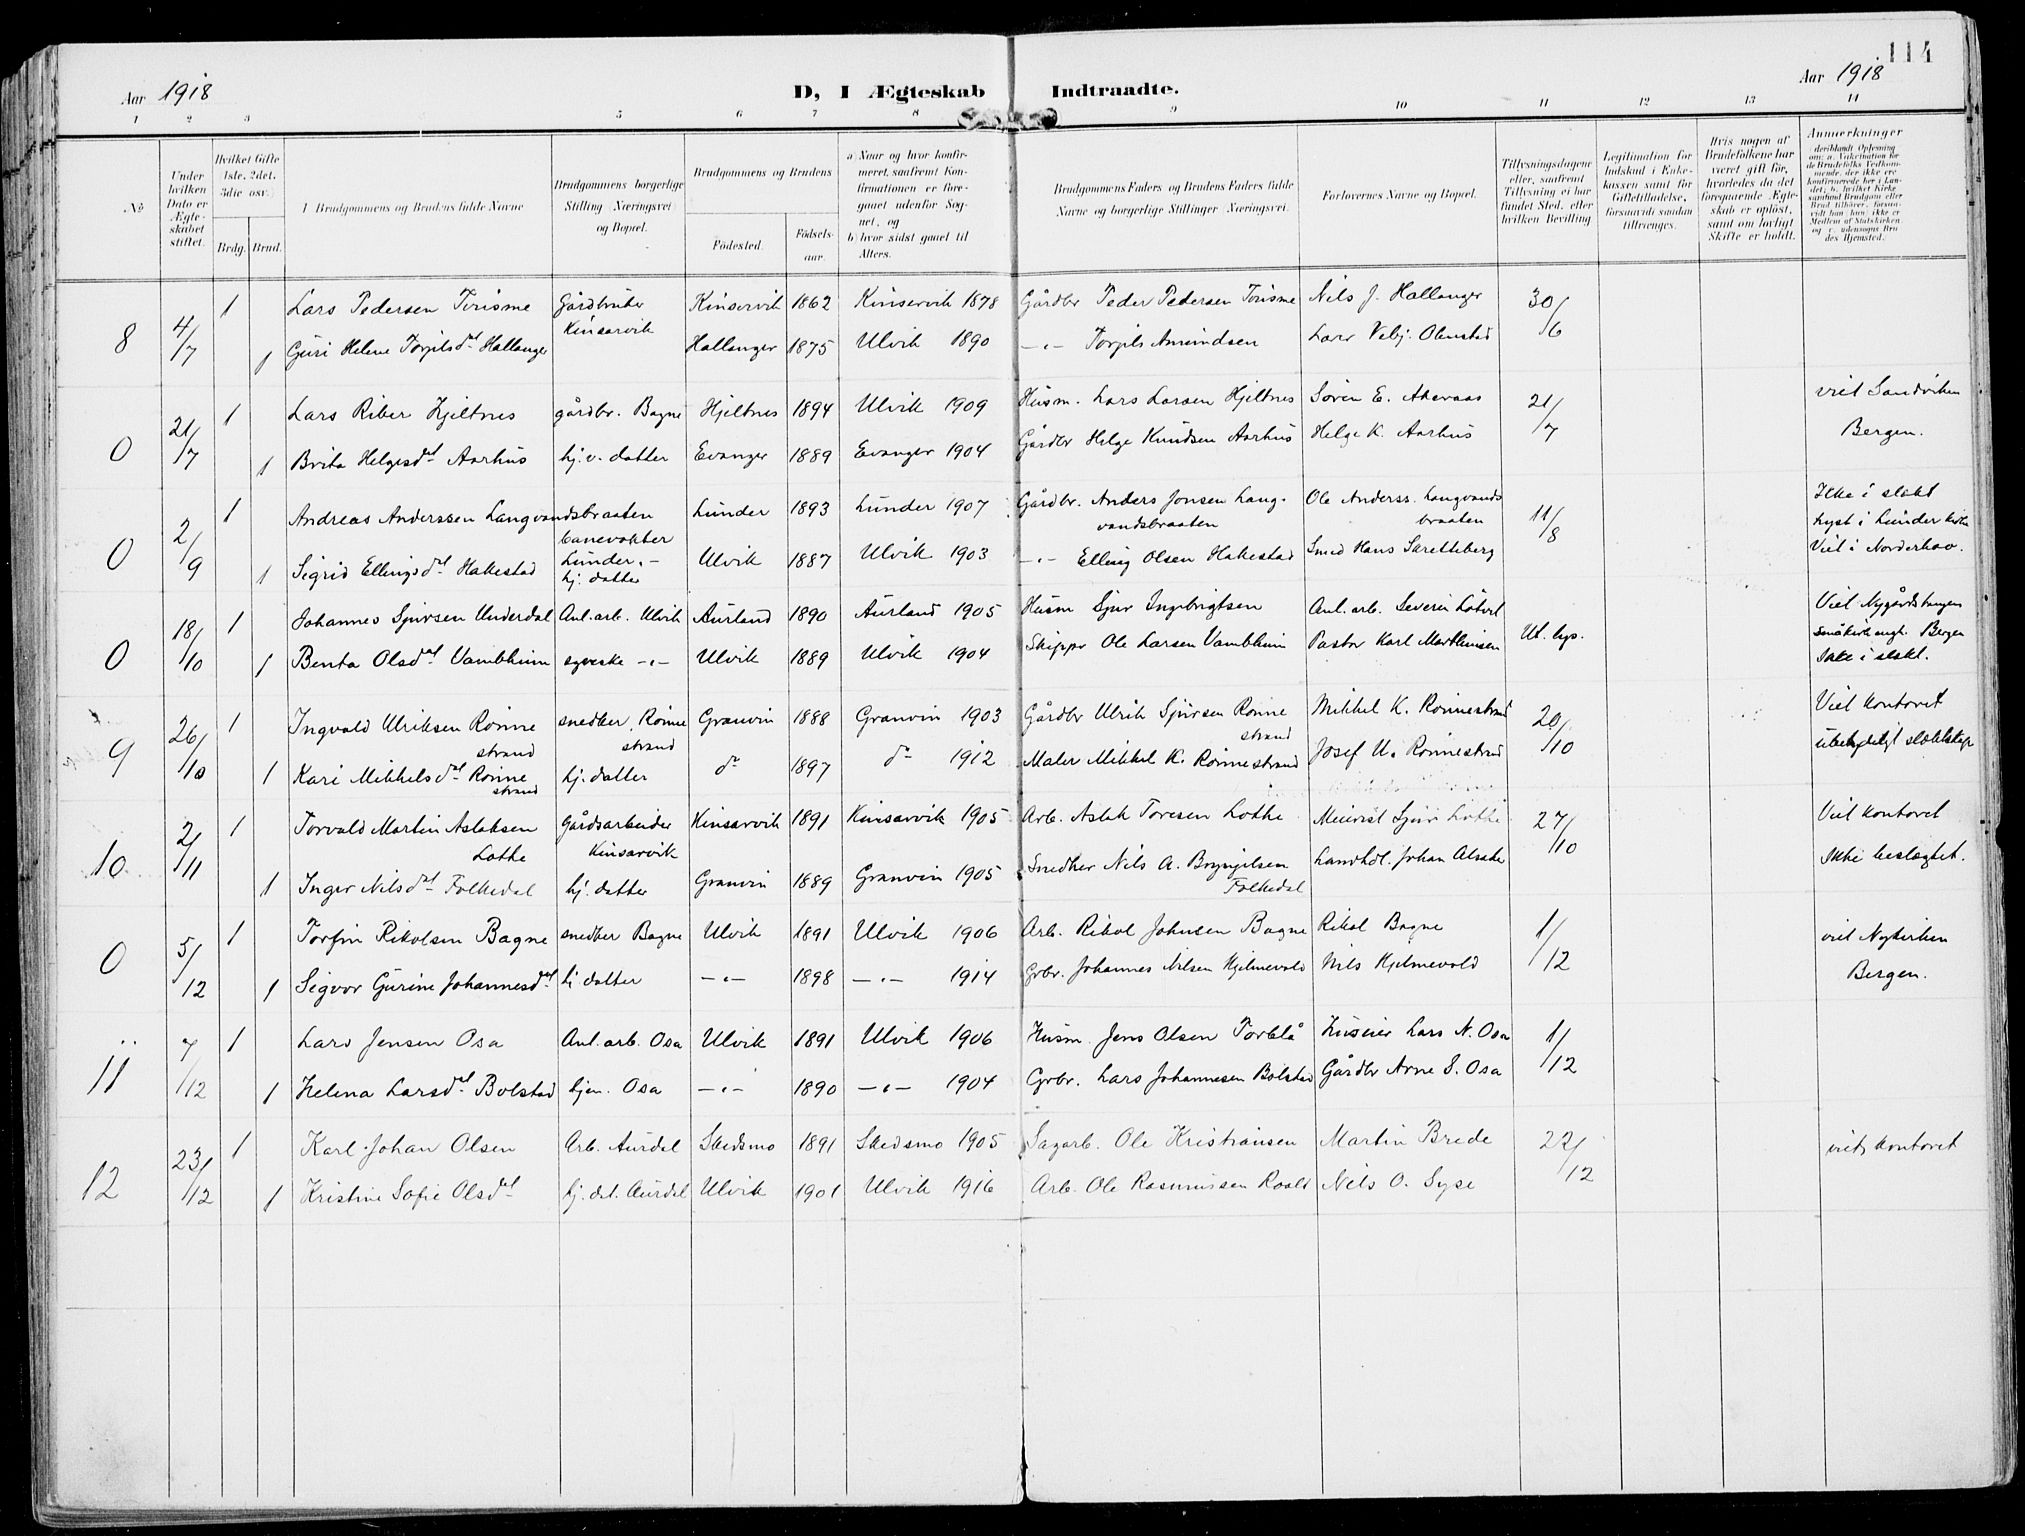 114
Aar 1918 D, I Ægteskab Indtraadte. Aar 1918
1 2 3 5 6 7 8 9 10 11 12 13 14
No.
Under hvilken Dato er Ægteskabet stiftet.
Hvilket Gifte 1ste, 2det, 3die osv.)
Brdg. Brud.
Brudgommens og Brudens fulde Navne
Brudgommens borgerlige Stilling (Næringsvei) og Bopæl.
Brudgommens og Brudens
Födested. Födselsaar.
a) Naar og hvor konfirmeret, saafremt Konfirmationen er foregaaet udenfor Sognet, og
b) hvor sidst gaaet til Alters.
Brudgommens Faders og Brudens Faders fulde Navne og borgerlige Stillinger (Næringsvei).
Forlovernes Navne og Bopæl.
Tillysningsdagene eller, saafremt Tillysning ei har fundet Sted, efter hvilken Bevilling
Legitimation for Indskud i Enkekassen samt for Giftetilladelse, forsaavidt saadan tiltrænges.
Hvis nogen af Brudefolkene har været gift før, hvorledes da det foregaaende Ægteskab er opløst, samt om lovligt Skifte er holdt.
Anmerkninger
deriblandt Oplysning om: a. Vakcination for de Brudefolks Vedkommende, der ikke ere konfirmerede her i Landet; b. hvilket Kirkesamfund Brudgom eller Brud tilhører, forsaavidt han (hun) ikke er Medlem af Statskirken, og c. udensogns Brudes Hjemsted.
8 4/7 1 Lars Pedersen Torisme Gårdbruker Kinsarvik Kinservik 1862 Kinservik 1878 Gårdbr Peder Pedersen Torisme Nils J. Hallanger 30/6
1 Guri Helene Torjilsdtl Hallanger Hallanger 1875 Ulvik 1890 -"- Torjils Amundsen Lærer Vebj. Olmstad
0 21/7 1 Lars Riber Hjeltnes gårdbr. Bagne Hjeltnes 1894 Ulvik 1909 Husm. Lars Larsen Hjeltnes Søren E. Akeraas 21/7 viet Sandviken
1 Brita Helgesdtl Aarhus hj.v. datter Evanger 1889 Evanger 1904 Gårdbr Helge Knudsen Aarhus Helge K. Aarhus Bergen.
0 2/9 1 Andreas Anderssen Langvandsbraaten banevokter Lunder Lunder 1893 Lunder 1907 Gårdbr. Anders Jonsen Langvandsbraaten Ole Anderss. Langvandsbraaten 11/8 Ikke i slekt
Lyst i Lunder kirke
1 Sigrid Ellingsdtl Hakestad hj. datter Ulvik 1887 Ulvik 1903 -"- Elling Olsen Hakestad Smed Hans Sæetteberg Viet i Norderhov.
0 18/10 1 Johannes Sjursen Underdal Anl. arb. Ulvik Aurland 1890 Aurland 1905 Husm Sjur Ingebrigtsen Anl. arb. Severin Låtvet Ut. lys. Viet Nygårdstangen
småkirkemgh. Bergen
1 Benta Olsdtl Vambheim syerske -"- Ulvik 1889 Ulvik 1904 Skipper Ole Larsen Vambheim Pastor Karl Marthinsen Ikke i slekt.
9 26/10 1 Ingvald Ulriksen Rønnestrand snedker, Rønnestrand Granvin 1888 Granvin 1903 Gårdbr Ulrik Sjursen Rønnestrand Mikkel K. Rønnestrand 20/10 Viet kontoret
1 Kari Mikkelsdtl Rønnestrand hj. datter do 1897 do 1912 Maler Mikkel K. Rønnestrand Josef U. Rønnestrand ubetydeligt slektskap
10 2/11 1 Torvald Martin Aslaksen Lothe Gårdsarbeider Kinsarvik Kinsarvik 1891 Kinsarvik 1905 Arb. Aslak Toresen Lothe Meierist Sjur Lothe 27/10 Viet kontoret
1 Inger Nilsdtl Folkedal hj. datter Granvin 1889 Granvin 1905 Snedker Nils A. Brynjilsen Folkedal Landhdl. Johan Alsaker Ikke beslægtet.
0 5/12 1 Torfin Rikolsen Bagne snedker Bagne Ulvik 1891 Ulvik 1906 Arb. Rikol Johnsen Bagne Rikol Bagne 1/12 viet Nykirken
1 Sigvor Gurine Johannesdtl hj datter -"- 1898 -"- 1914 Grbr. Johannes Nilsen Hjelmevold Nils Hjelmevold Bergen.
11 7/12 1 Lars Jensen Osa Anl. arb. Osa Ulvik 1891 Ulvik 1906 Husm. Jens Olsen Torblå Huseier Lars N. Osa 1/12
1 Helena Larsdtl Bolstad hjem. Osa -"- 1890 -"- 1904 Grbr. Lars Johannesen Bolstad Gårdbr Arne S. Osa
12 23/12 1 Karl Johan Olsen Arb. Aurdal Skedsmo 1891 Skedsmo 1905 Sagarb. Ole Kristiansen Martin Brede 22/12 viet kontoret
1 Kristine Sofie Olsdtl hj. dat. Aurdal Ulvik 1901 Ulvik 1916 Arb. Ole Rasmussen Roald Nils O. Syse